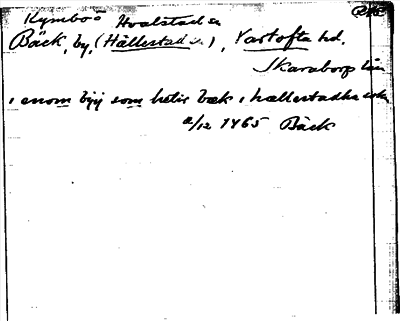 Kymbo Hvalstad sn
Bäck, by, (Hällestad sn), Vartofta hd.
Skaraborgs län
i enom byy som hetir bæk i hællestadha sokn
2/12 1465 Bäck